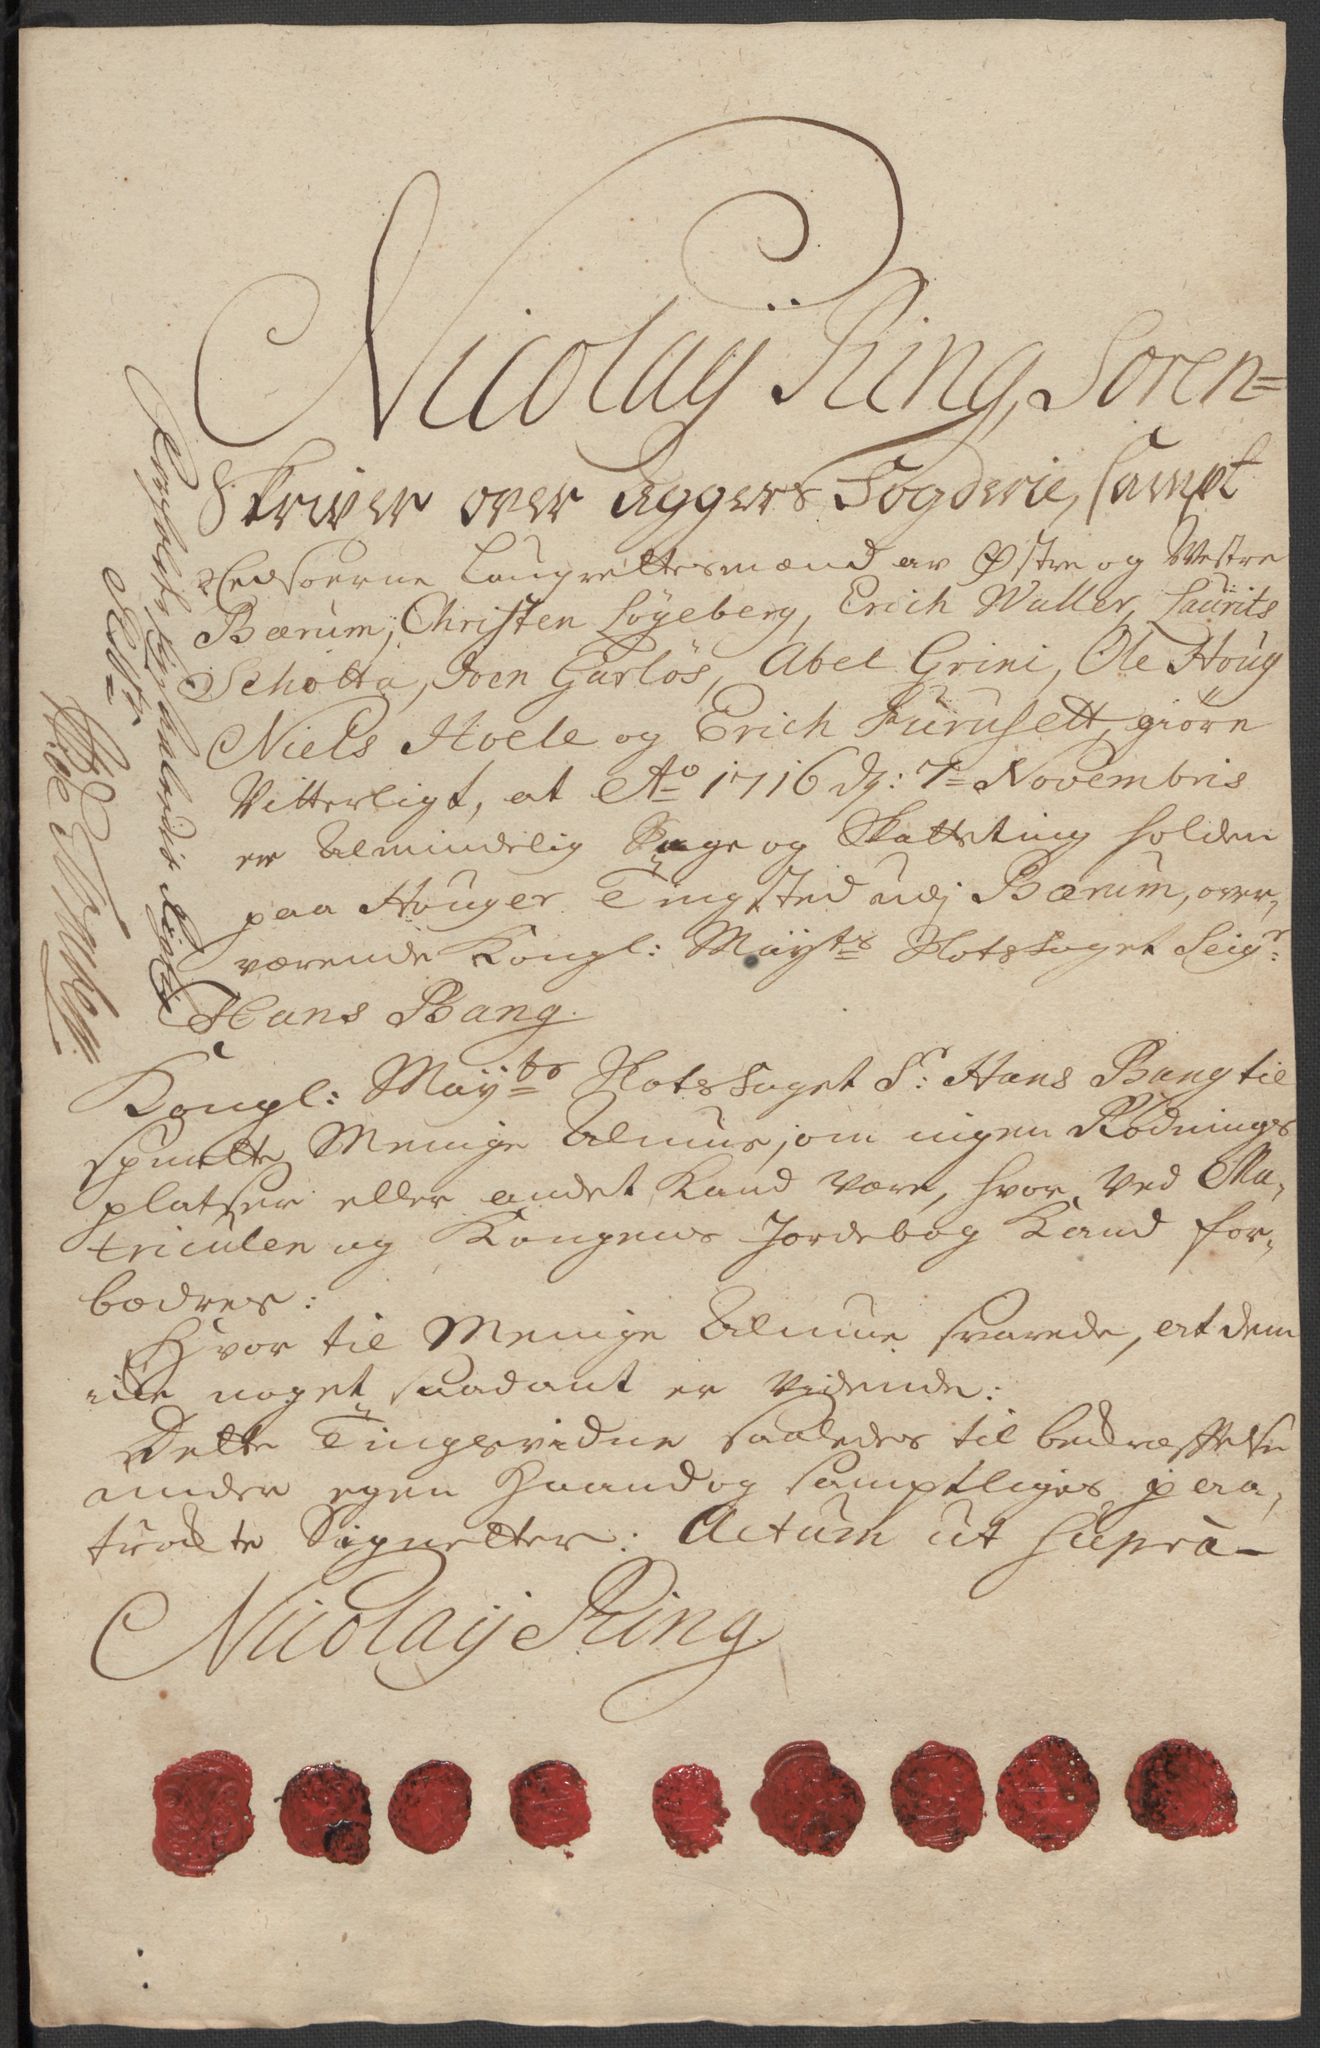 Nicolaÿ Ring, Soren=
Skriver over Aggers Fogderie, sampt
Edsoerne Laugrettesmænd av Østre og Westre
Bærum, Christen Løÿeberg, Erich Waller, Laurits
Scholta, Joen Garløs, Abel Grini, Ole Houg
Niels Hoele og Erich Furusett, giøre
Vitterligt, at Ao 1716 dȷ: 7= Novembris
er Almindelig Sage og Skatteting holden
paa Houger Tingsted udj Bærum, over,
værende Kongl: Mayts Slotsfoget Seigr:
Hans Bang.
Kongl: Mayts Slotsfoget Sr: Hans Bang til
spurte Menige Almue, om ingen Rødnings
platser eller andet kand være, hvor ved Ma,
triculen og Kongens Jordebog kand for,
bedres:
Hvor til Menige Almue svarede, at dem
icke noget saadant er vidende:
Dette Tingsvidne saaledes til bekræftelse
under egen haand og samptliges paa,
trøckte Signetter. Actum ut supra—
Nicolaij Ring